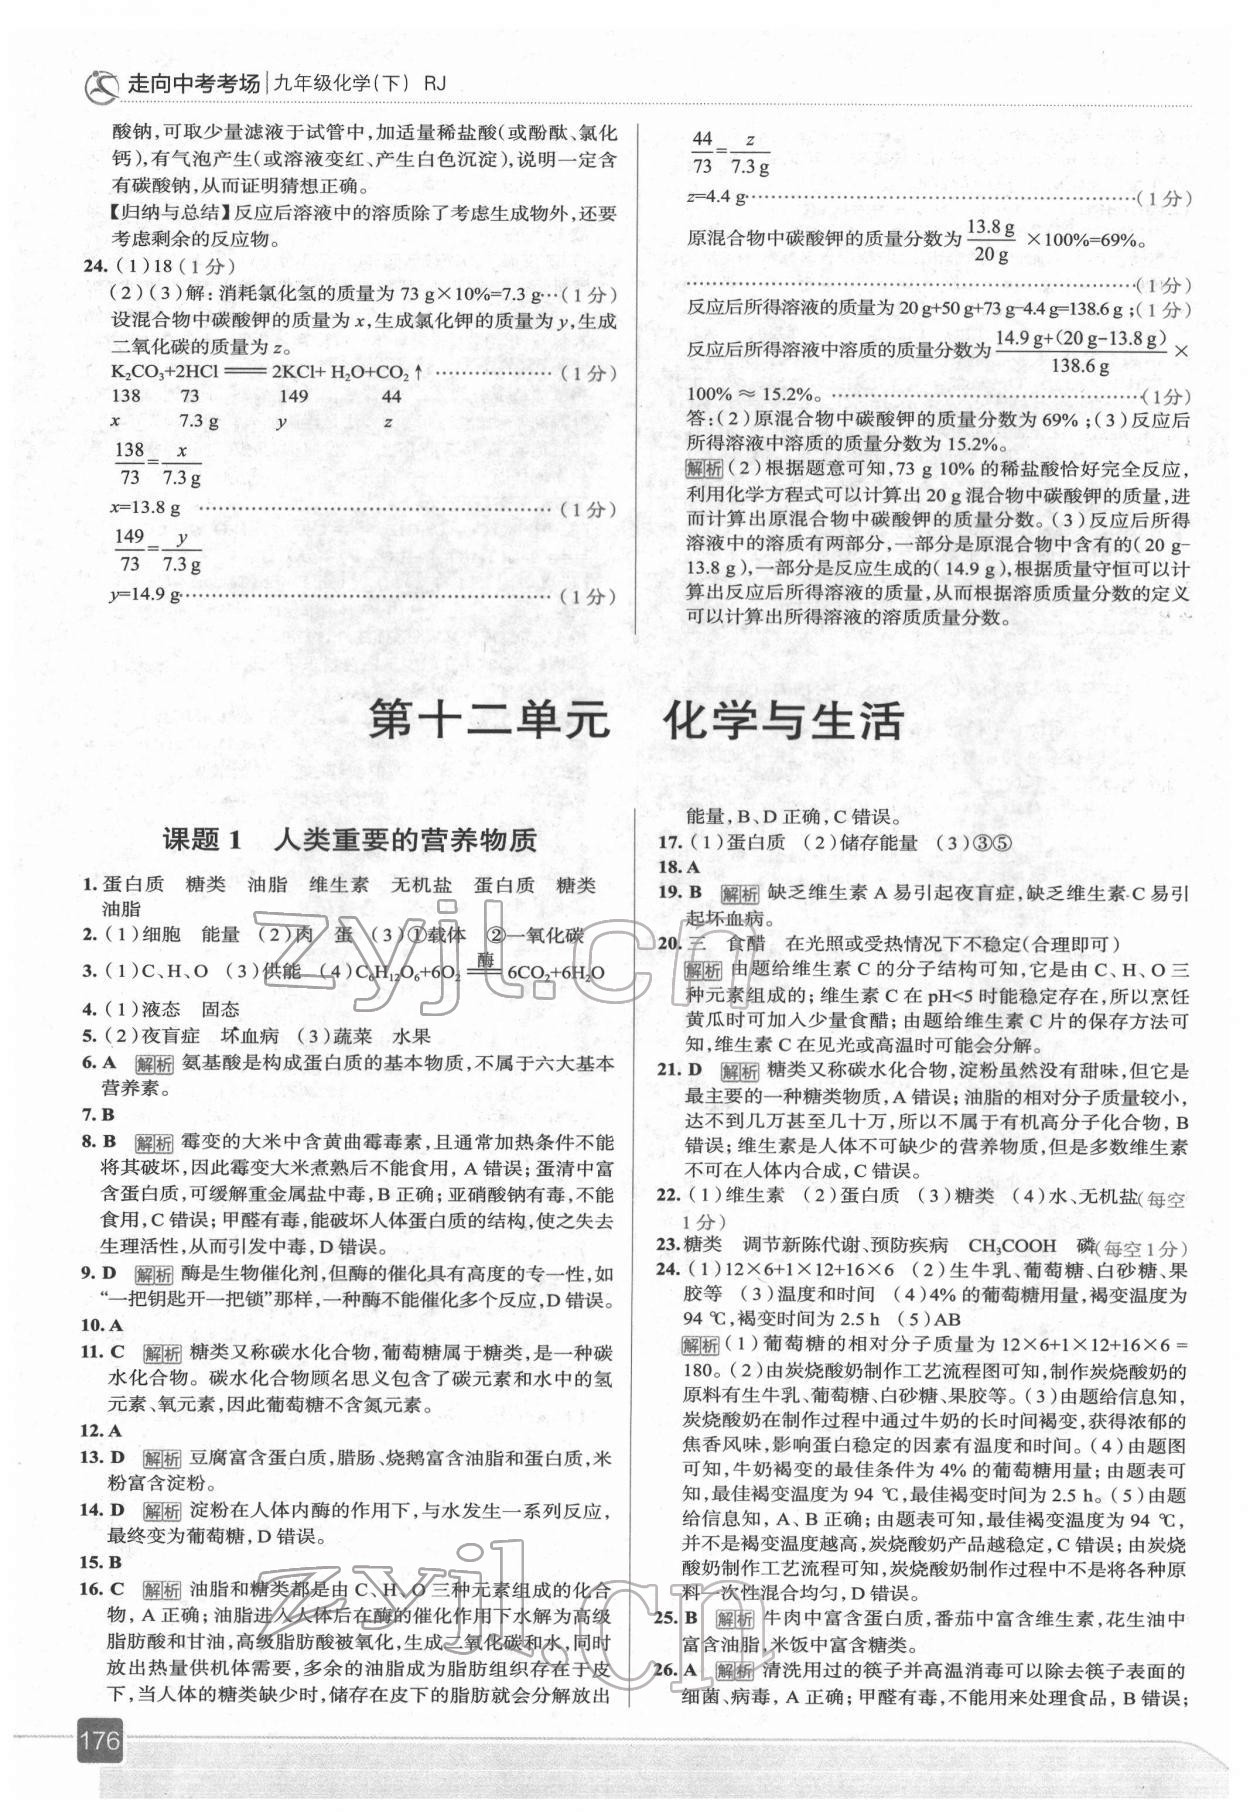 走向中考考场 九年级化学(下) RJ
酸钠,可取少量滤液于试管中,加适量稀盐酸(或酚酞、氯化
钙),有气泡产生(或溶液变红、产生白色沉淀),说明一定含
有碳酸钠,从而证明猜想正确。
【归纳与总结】反应后溶液中的溶质除了考虑生成物外,还要
考虑剩余的反应物。
24. (1)18(1分)
(2)(3)解:消耗氯化氢的质量为73 g×10%=7.3 g…(1分)
设混合物中碳酸钾的质量为x,生成氯化钾的质量为y,生成
二氧化碳的质量为z。
K₂CO₃+2HCl═══2KCl+ H₂O+CO₂↑ ………………(1分)
138 73 149 44
x 7.3 g y z
138/73=x/7.3 g
x=13.8 g ………………(1分)
149/73=y/7.3 g
y=14.9 g………………(1分)
44/73=z/7.3 g
z=4.4 g………………(1分)
原混合物中碳酸钾的质量分数为13.8 g/20 g×100%=69%。
………………(1分)
反应后所得溶液的质量为20 g+50 g+73 g-4.4 g=138.6 g;(1分)
反应后所得溶液中溶质的质量分数为14.9 g+(20 g-13.8 g)/138.6 g×
100% ≈ 15.2%。………………(1分)
答:(2)原混合物中碳酸钾的质量分数为69%;(3)反应后
所得溶液中溶质的质量分数为15.2%。
解析(2)根据题意可知,73 g 10%的稀盐酸恰好完全反应,
利用化学方程式可以计算出20 g混合物中碳酸钾的质量,进
而计算出原混合物中碳酸钾的质量分数。(3)反应后所得
溶液中的溶质有两部分,一部分是原混合物中含有的(20 g-
13.8 g),一部分是反应生成的(14.9 g),根据质量守恒可以计
算出反应后所得溶液的质量,从而根据溶质质量分数的定义
可以计算出所得溶液的溶质质量分数。
第十二单元 化学与生活
课题1 人类重要的营养物质
1. 蛋白质 糖类 油脂 维生素 无机盐 蛋白质 糖类
油脂
2. (1)细胞 能量 (2)肉 蛋 (3)①载体 ②一氧化碳
3. (1)C、H、O (3)供能 (4)C₆H₁₂O₆+6O₂═酶═6CO₂+6H₂O
4. (1)液态 固态
5. (2)夜盲症 坏血病 (3)蔬菜 水果
6. A 解析 氨基酸是构成蛋白质的基本物质,不属于六大基本
营养素。
7. B
8. B 解析 霉变的大米中含黄曲霉毒素,且通常加热条件不能
将其破坏,因此霉变大米煮熟后不能食用,A错误;蛋清中富
含蛋白质,可缓解重金属盐中毒,B正确;亚硝酸钠有毒,不能
食用,C错误;甲醛有毒,能破坏人体蛋白质的结构,使之失去
生理活性,从而引发中毒,D错误。
9. D 解析 酶是生物催化剂,但酶的催化具有高度的专一性,如
“一把钥匙开一把锁”那样,一种酶不能催化多个反应,D错误。
10. A
11. C 解析 糖类又称碳水化合物,葡萄糖属于糖类,是一种碳
水化合物。碳水化合物顾名思义包含了碳元素和水中的氢
元素、氧元素,因此葡萄糖不含氮元素。
12. A
13. D 解析 豆腐富含蛋白质,腊肠、烧鹅富含油脂和蛋白质,米
粉富含淀粉。
14. D 解析 淀粉在人体内酶的作用下,与水发生一系列反应,
最终变为葡萄糖,D错误。
15. B
16. C 解析 油脂和糖类都是由C、H、O三种元素组成的化合
物,A正确;油脂进入人体后在酶的催化作用下水解为高级
脂肪酸和甘油,高级脂肪酸被氧化,生成二氧化碳和水,同时
放出热量供机体需要,多余的油脂成为脂肪组织存在于皮
下,当人体的糖类缺少时,储存在皮下的脂肪就会分解放出
能量,B、D正确,C错误。
17. (1)蛋白质 (2)储存能量 (3)③⑤
18. A
19. B 解析 缺乏维生素A易引起夜盲症,缺乏维生素C易引
起坏血病。
20. 三 食醋 在光照或受热情况下不稳定(合理即可)
解析 由题给维生素C的分子结构可知,它是由C、H、O三
种元素组成的;维生素C在pH<5时能稳定存在,所以烹饪
黄瓜时可加入少量食醋;由题给维生素C片的保存方法可
知,维生素C在见光或高温时可能会分解。
21. D 解析 糖类又称碳水化合物,淀粉虽然没有甜味,但它是
最主要的一种糖类物质,A错误;油脂的相对分子质量较小,
达不到几万甚至几十万,所以不属于有机高分子化合物,B
错误;维生素是人体不可缺少的营养物质,但是多数维生素
不可在人体内合成,C错误。
22. (1)维生素 (2)蛋白质 (3)糖类 (4)水、无机盐(每空
1分)
23. 糖类 调节新陈代谢、预防疾病 CH₃COOH 磷(每空1分)
24. (1)12×6+1×12+16×6 (2)生牛乳、葡萄糖、白砂糖、果
胶等 (3)温度和时间 (4)4%的葡萄糖用量,褐变温度为
94 ℃,褐变时间为2.5 h (5)AB
解析(1)葡萄糖的相对分子质量为12×6+1×12+16×6 =
180。(2)由炭烧酸奶制作工艺流程图可知,制作炭烧酸奶的
原料有生牛乳、葡萄糖、白砂糖、果胶等。(3)由题给信息知,
炭烧酸奶在制作过程中通过牛奶的长时间褐变,获得浓郁的
焦香风味,影响蛋白稳定的因素有温度和时间。(4)由题图
可知,牛奶褐变的最佳条件为4%的葡萄糖用量;由题表可
知,最佳褐变温度为94 ℃,最佳褐变时间为2.5 h。(5)由题
给信息知,A、B正确;由题表可知,最佳褐变温度为94 ℃,
并不是褐变温度越高,炭烧酸奶产品越稳定,C错误;由炭烧
酸奶制作工艺流程可知,炭烧酸奶制作过程中不是将各种原
料一次性混合均匀,D错误。
25. B 解析 牛肉中富含蛋白质,番茄中富含维生素,花生油中
富含油脂,米饭中富含糖类。
26. A 解析 清洗用过的筷子并高温消毒可以除去筷子表面的
细菌、病毒,A正确;甲醛有毒,不能用来处理食品,B错误;
176
zyjl.cn
zyjl.cn